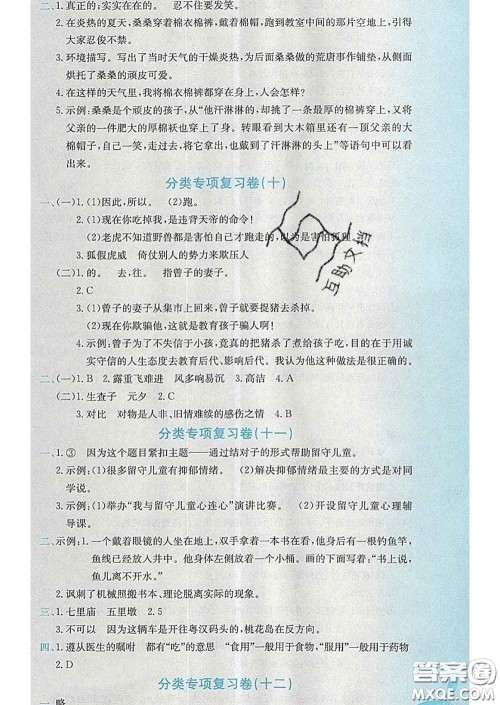 二、1.真正的;实实在在的。 忍受不住。
2.在炎热的夏天,桑桑穿着棉衣棉裤,戴着棉帽,跑到教室中间的那片空地上,引得大家忍俊不禁。
3.环境描写。写出了当时天气的干燥炎热,为后面桑桑做的荒唐事作铺垫,从侧面烘托了桑桑的顽皮可爱。
4.在这样的天气里,我将棉衣棉裤都穿在身上,人会怎样?
5.示例:桑桑是个顽皮的孩子,从“他汗淋淋的,却挑了一条最厚的棉裤穿上,又将父亲的一件肥大的厚棉袄也穿上了身。转眼看到大木箱里还有一顶父亲的大棉帽子,自己一笑,走过去,将它拿过来,也戴到了汗淋淋的头上”等语句中可以看出来。
分类专项复习卷(十)
一、(一)1.(1)因此,所以。 (2)跑。
2.(1)现在你吃掉我,是违背天帝的命令!
(2)老虎不知道野兽都是害怕自己才跑走的,以为是害怕狐狸。
3.狐假虎威 倚仗别人的势力来欺压人
(二)1.的。 去,往。 指曾子的妻子。
2.C
3.(1)曾子的妻子从集市上回来,曾子就要捉猪去杀掉。
(2)现在你欺骗他,这就是教育孩子骗人啊!
4.示例:曾子为了不失信于小孩,竟真的把猪杀了煮给孩子吃,目的在于用诚实守信的人生态度去教育后代、影响后代。我认为他这种做法是很正确的。
二、(一)1.B 2.露重飞难进 风多响易沉 3.高洁 4.A
(二)1.生查子 元夕 2.C
3.对比 对物是人非、旧情难续的感伤之情 4.B
分类专项复习卷(十一)
一、1.③ 因为这个题目紧扣主题——通过结对子的形式帮助留守儿童。
2.示例:(1)很多留守儿童有抑郁情绪。 (2)解决抑郁情绪最主要的方式是和父母沟通。
3.示例:(1)举办“我与留守儿童心连心”演讲比赛。 (2)开设留守儿童心理辅导课。
二、示例:1.一个戴着眼镜的人坐在地上,双手拿着一本书,他面前有一根钓鱼竿,鱼线已经放入井中。他身体左侧放着一个小桶。画有一句话:“书上说,鱼儿离不开水。”
2.讽刺了机械照搬书本、理论脱离实际的现象。
三、1.七里庙 五里墩 2.5
3.不可以 因为这辆车是开往粤汉码头的,桃花岛在反方向。
四、1.遵从医生的嘱咐 都有“吃”的意思 “食用”一般用于食物,“服用”一般用于药物
2.D
分类专项复习卷(十二)
一、略
互助文档
答案圈
MXQE.COM